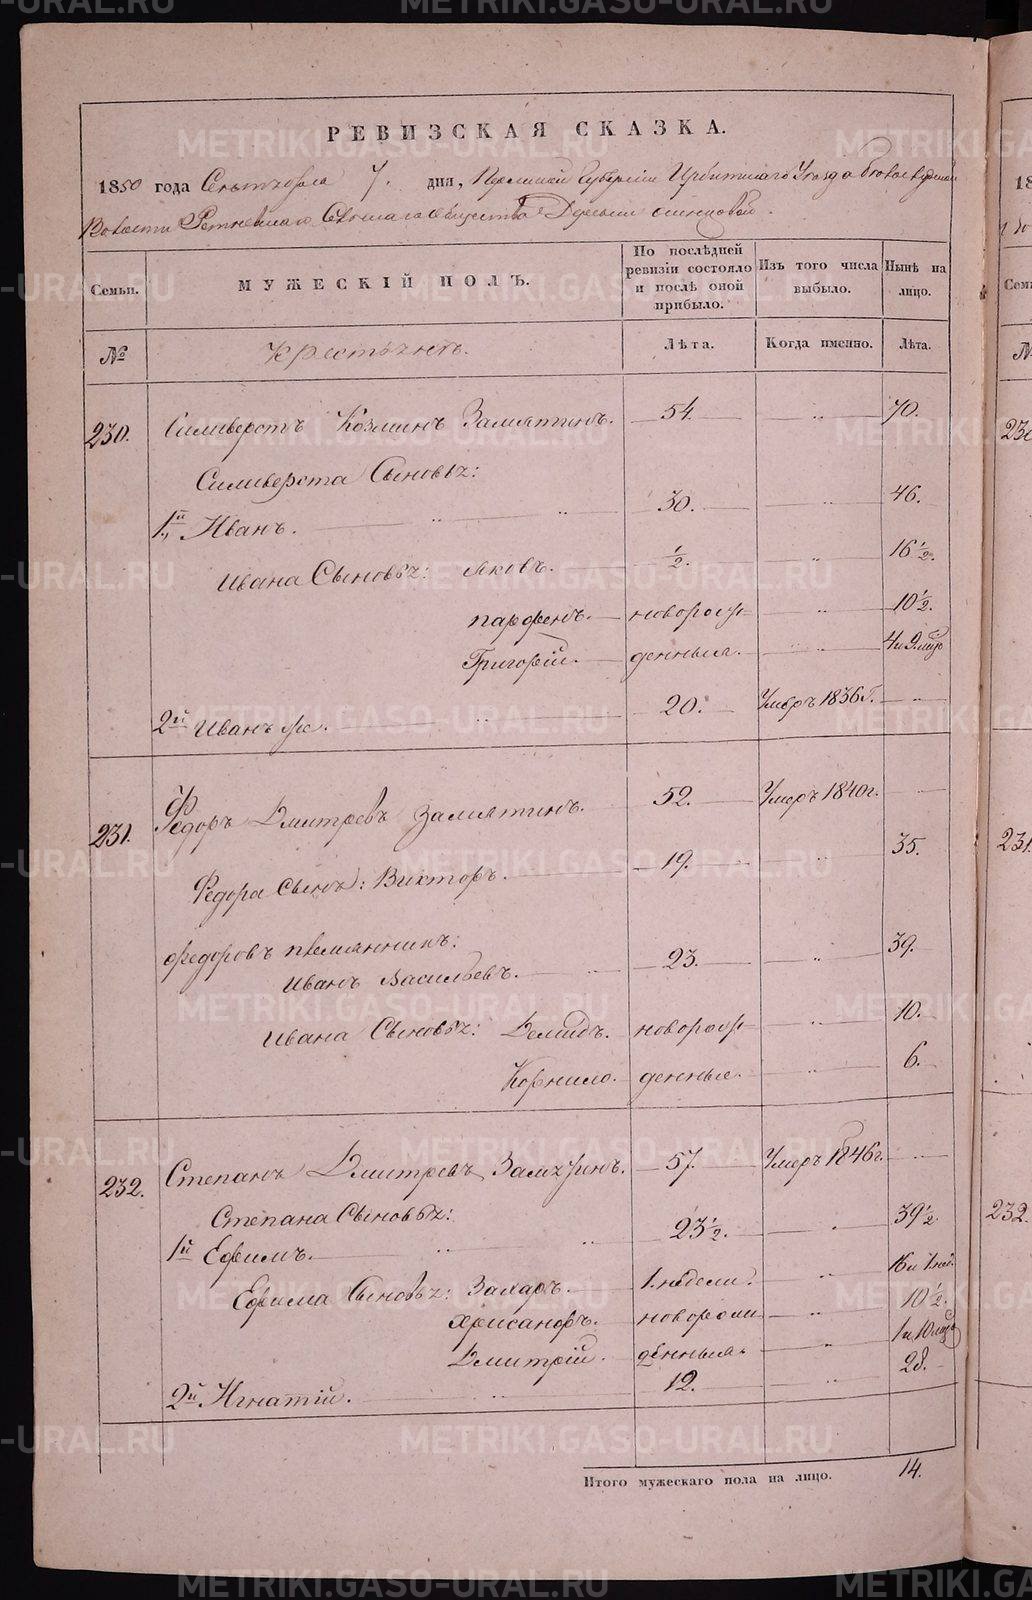 РЕВИЗСКАЯ СКАЗКА.
1850 года Сентября 7. дня, Пермской Губернии Ирбитского Уезда
Волости Сельскаго общества Деревни
Семьи. МУЖЕСКІЙ ПОЛЪ. По послѣдней ревизіи состояло и послѣ оной прибыло. Изъ того числа выбыло. Нынѣ на лицо.
№ Крестьянѣ. Лѣта. Когда именно. Лѣта.
230. Силиверстъ Козминъ Замятинъ. 54. " 70.
Силиверста Сыновья:
1й Иванъ. " " 30. " 46.
Ивана Сыновья: Яковъ. ½. " 16½.
Парфенъ. новорож " 10½.
Григорій. денныя. " 4 и 9 мцъ
2й Иванъ же. " 20. Умеръ 1836 г. "
231. Федоръ Дмитревъ Замятинъ. 52. Умеръ 1840 г. "
Федора Сынъ: Викторъ. 19. " 35.
Федоровъ племянникъ:
Иванъ Васильевъ. " 23. " 39.
Ивана Сыновья: Демидъ. новорож " 10.
Корнило. денные. " 6.
232. Степанъ Дмитревъ 57. Умеръ 1846 г. "
Степана Сыновья:
1й Ефимъ. " " 23½. " 39½.
Ефима Сыновья: Захаръ. 1. недели. " 16 и 1. нед.
Хрисанфъ. " 10½.
Дмитрій. денныя. " 1 и 10 мцъ
2й Игнатій. " 12. " 28.
Итого мужескаго пола на лицо. 14.
18
230
231.
232.
METRIKI.GASO-URAL.RU